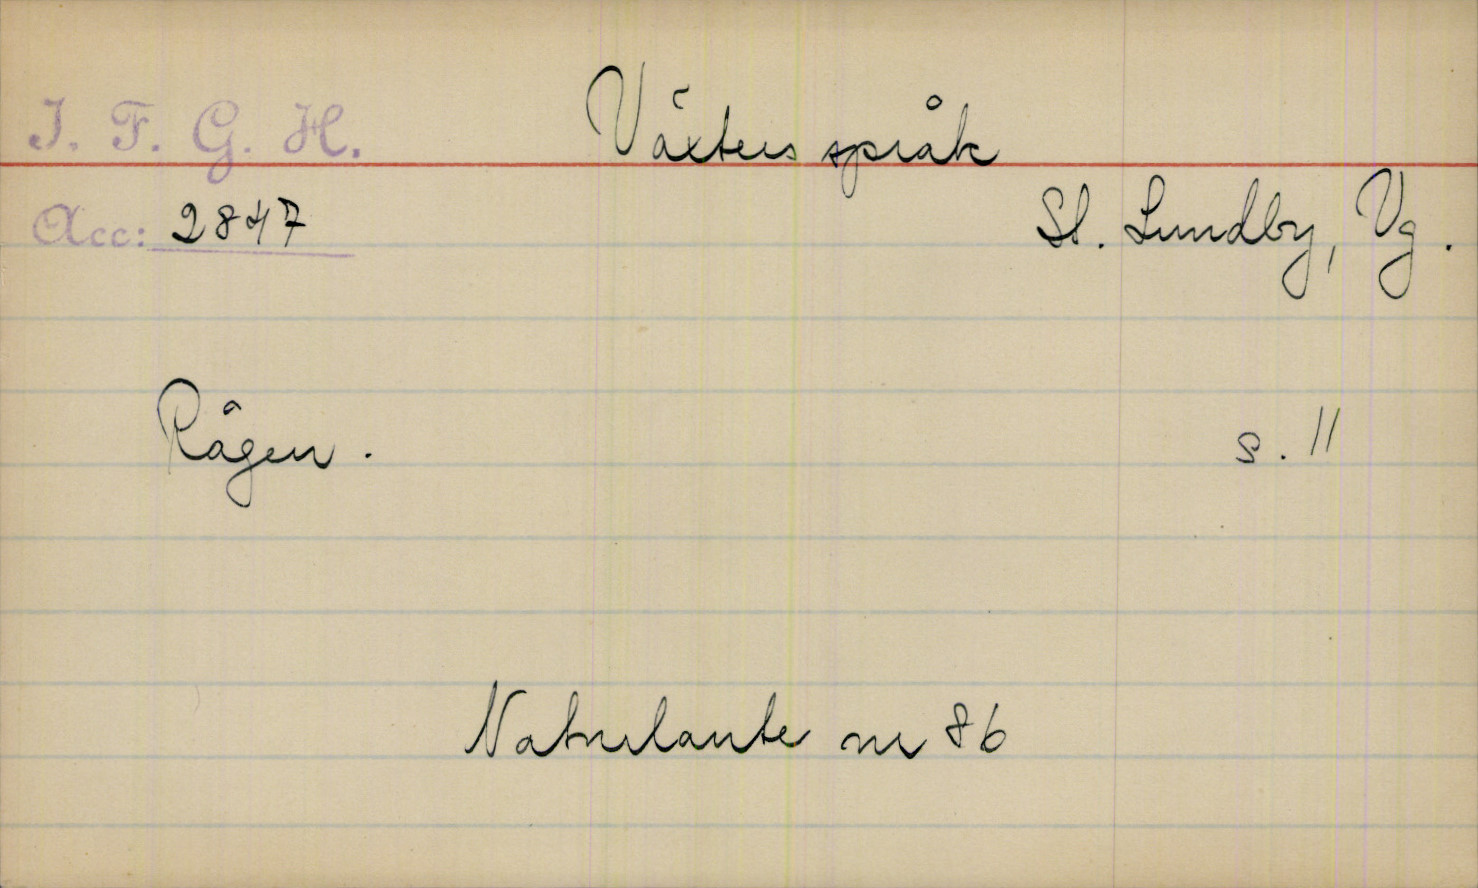 I. F. G. H.
Växters språk
Acc: 2847
St. Lundby, Vg.
Rågen. s. 11
Naturlaute nr 86